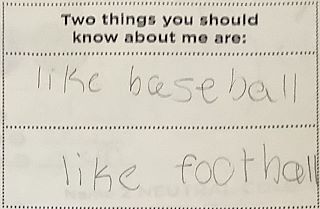 Two things you should
know about me are:
like baseball
like football